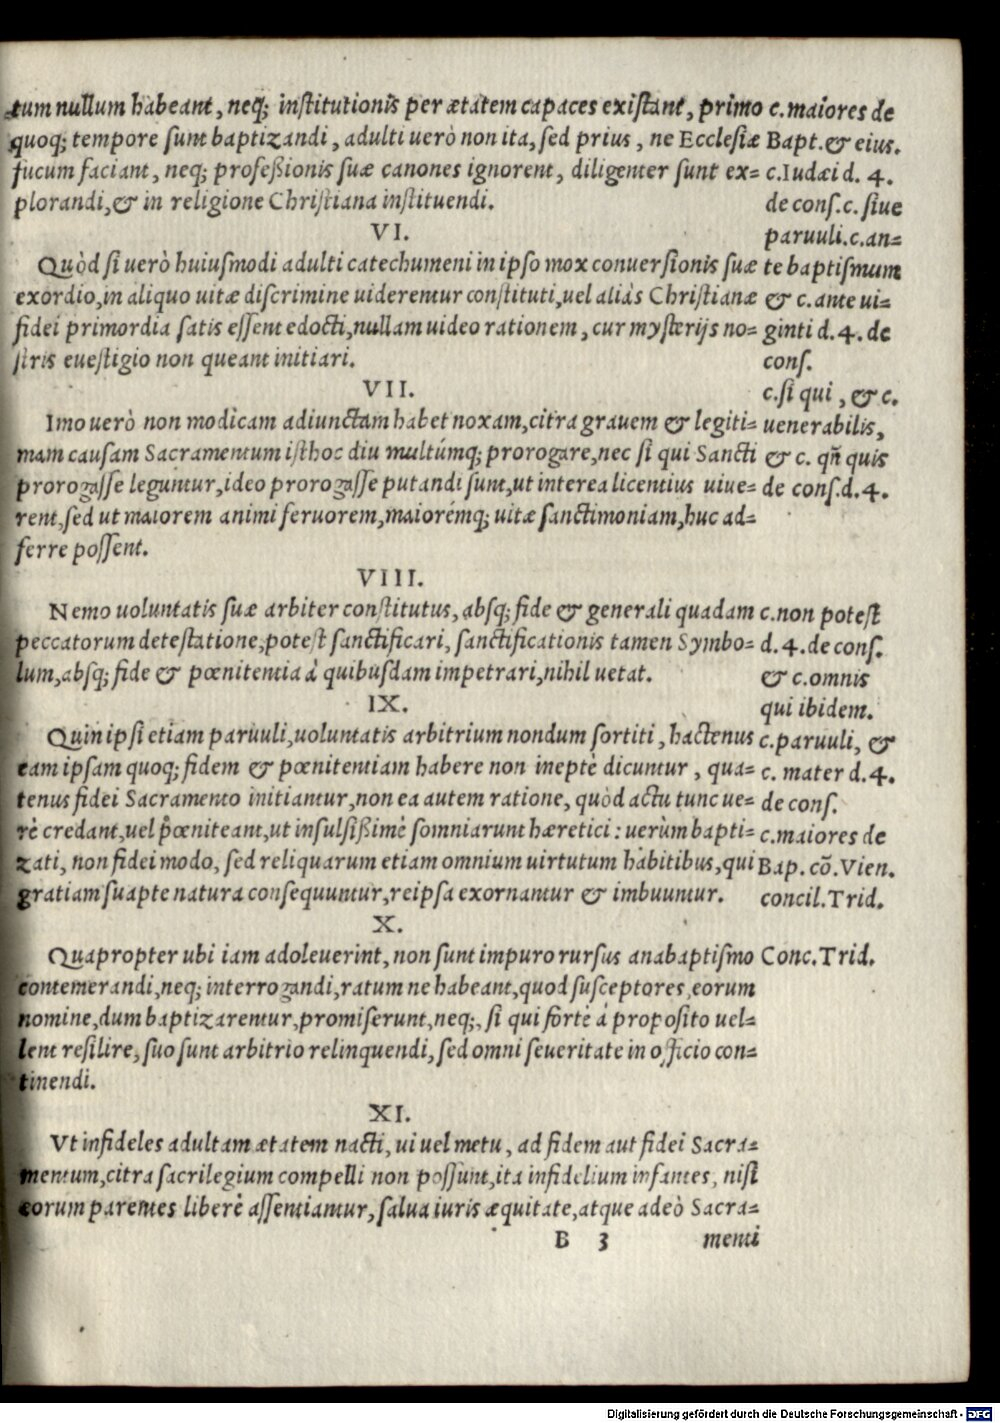 tum nullum habeant, neq; institutionis per ætatem capaces existant, primo
quoq; tempore sunt baptizandi, adulti uerò non ita, sed prius, ne Ecclesiæ
fucum faciant, neq; profeßionis suæ canones ignorent, diligenter sunt ex=
plorandi, & in religione Christiana instituendi.
c.maiores de
Bapt.& eius.
c.Iudæi d. 4.
de cons.c. siue
paruuli.c.an=
te baptismum
& c.ante ui=
ginti d.4. de
cons.
VI.
Quòd si uerò huiusmodi adulti catechumeni in ipso mox conuersionis suæ
exordio, in aliquo uitæ discrimine uiderentur constituti, uel aliàs Christianæ
fidei primordia satis essent edocti, nullam uideo rationem, cur mysterijs no=
stris euestigio non queant initiari.
VII.
Imo uerò non modicam adiunctam habet noxam, citra grauem & legiti=
mam causam Sacramentum isthoc diu multúmq; prorogare, nec si qui Sancti
prorogasse leguntur, ideo prorogasse putandi sunt, ut interea licentius uiue=
rent, sed ut maiorem animi feruorem, maiorémq; uitæ sanctimoniam, huc ad=
ferre possent.
c.si qui, & c.
uenerabilis,
& c. qñ quis
de cons.d.4.
VIII.
Nemo uoluntatis suæ arbiter constitutus, absq; fide & generali quadam
peccatorum detestatione, potest sanctificari, sanctificationis tamen Symbo=
lum, absq; fide & pœnitentia à quibusdam impetrari, nihil uetat.
c.non potest
d.4.de cons.
& c.omnis
qui ibidem.
IX.
Quin ipsi etiam paruuli, uoluntatis arbitrium nondum sortiti, hactenus
eam ipsam quoq; fidem & pœnitentiam habere non ineptè dicuntur, qua=
tenus fidei Sacramento initiantur, non ea autem ratione, quòd actu tunc ue=
rè credant, uel pœniteant, ut insulsißimè somniarunt hæretici: uerùm bapti=
zati, non fidei modo, sed reliquarum etiam omnium uirtutum habitibus, qui
gratiam suapte natura consequuntur, reipsa exornantur & imbuuntur.
c.paruuli, &
c. mater d.4.
de cons.
c.maiores de
Bap. cõ. Vien.
concil.Trid.
X.
Quapropter ubi iam adoleuerint, non sunt impuro rursus anabaptismo
contemerandi, neq; interrogandi, ratum ne habeant, quod susceptores, eorum
nomine, dum baptizarentur, promiserunt, neq;, si qui fortè à proposito uel=
lent resilire, suo sunt arbitrio relinquendi, sed omni seueritate in officio con=
tinendi.
Conc.Trid.
XI.
Vt infideles adultam ætatem nacti, ui uel metu, ad fidem aut fidei Sacra=
mentum, citra sacrilegium compelli non possunt, ita infidelium infantes, nisi
eorum parentes liberè assentiantur, salua iuris æquitate, atque adeò Sacra=
B 3 menti
Digitalisierung gefördert durch die Deutsche Forschungsgemeinschaft - DFG